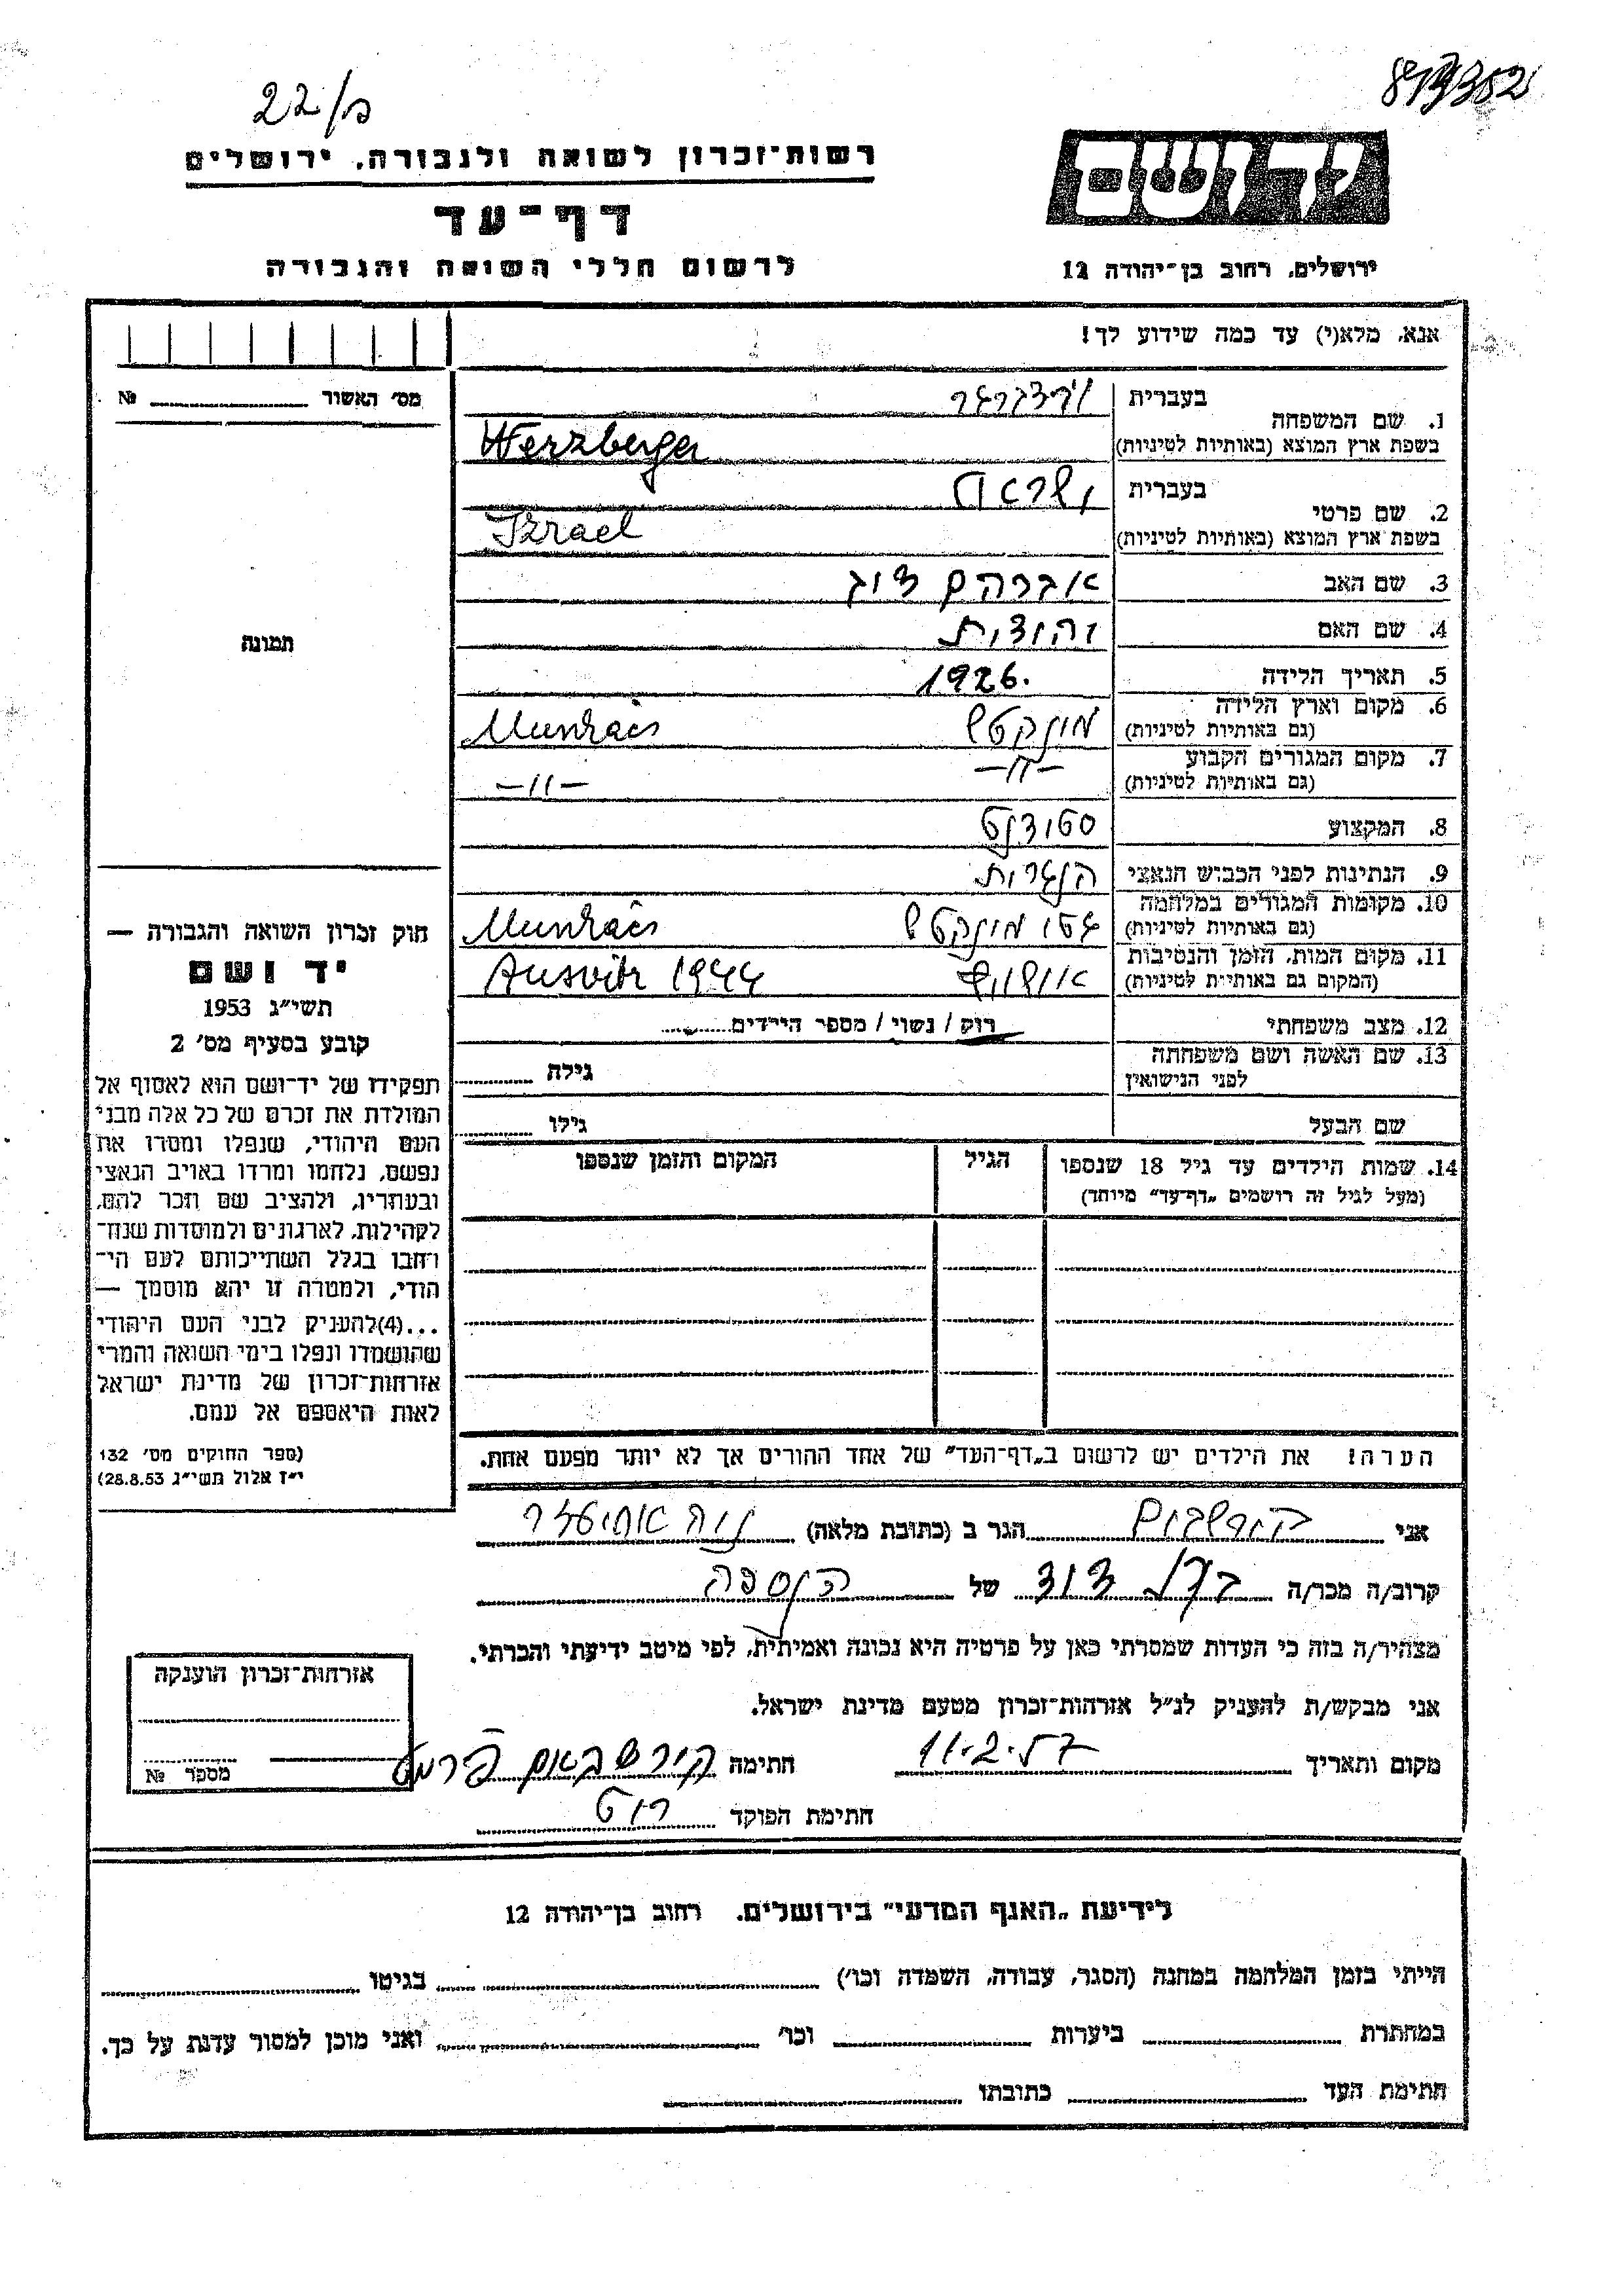 22/מ
רשות־זכרון לשואה ולגבורה, ירושלים
דף־עד
לרשום חללי השואה והגבורה
יד ושם
ירושלים, רחוב בן־יהודה 12
אנא, מלא(י) עד כמה שידוע לך!
מס׳ האשור № 
1. שם המשפחה בעברית ורצברגר
בשפת ארץ המוצא (באותיות לטיניות) Werzberger
2. שם פרטי בעברית ישראל
בשפת ארץ המוצא (באותיות לטיניות) Izrael
3. שם האב אברהם דוב
4. שם האם יהודית
5. תאריך הלידה 1926.
6. מקום וארץ הלידה (גם באותיות לטיניות) מונקטש Munkács
7. מקום המגורים הקבוע (גם באותיות לטיניות) –״– –״–
8. המקצוע סטודנט
9. הנתינות לפני הכבוש הנאצי הונגרית
10. מקומות המגורים במלחמה (גם באותיות לטיניות) גטו מונקטש Munkács
11. מקום המות, הזמן והנסיבות (המקום גם באותיות לטיניות) אושויץ Ausvitz 1944
12. מצב משפחתי רוק / נשוי / מספר הילדים
13. שם האשה ושם משפחתה לפני הנישואין גילה
שם הבעל גילו
14. שמות הילדים עד גיל 18 שנספו הגיל המקום והזמן שנספו
(מעל לגיל זה רושמים „דף־עד״ מיוחד)
הערה! את הילדים יש לרשום ב„דף־העד״ של אחד ההורים אך לא יותר מפעם אחת.
תמונה
חוק זכרון השואה והגבורה —
יד ושם
תשי״ג 1953
קובע בסעיף מס׳ 2
תפקידו של יד־ושם הוא לאסוף אל
המולדת את זכרם של כל אלה מבני
העם היהודי, שנפלו ומסרו את
נפשם, נלחמו ומרדו באויב הנאצי
ובעוזריו, ולהציב שם וזכר להם,
לקהילות, לארגונים ולמוסדות שנח־
רבו בגלל השתייכותם לעם הי־
הודי, ולמטרה זו יהא מוסמך —
...(4)להעניק לבני העם היהודי
שהושמדו ונפלו בימי השואה והמרי
אזרחות־זכרון של מדינת ישראל
לאות היאספם אל עמם.
(ספר החוקים מס׳ 132
י״ז אלול תשי״ג 28.8.53)
אני קורשבוים הגר ב (כתובת מלאה) נוה אליעזר
קרוב/ה מכר/ה בן דוד של הנספה
מצהיר/ה בזה כי העדות שמסרתי כאן על פרטיה היא נכונה ואמיתית, לפי מיטב ידיעתי והכרתי.
אני מבקש/ת להעניק לנ״ל אזרחות־זכרון מטעם מדינת ישראל.
מקום ותאריך 11.2.57 חתימה
חתימת הפוקד
אזרחות־זכרון הוענקה
מספר №
לידיעת „האגף המדעי״ בירושלים, רחוב בן־יהודה 12
הייתי בזמן המלחמה במחנה (הסגר, עבודה, השמדה וכו׳) בגיטו
במחתרת ביערות וכו׳ ואני מוכן למסור עדות על כך.
חתימת העד כתובתו